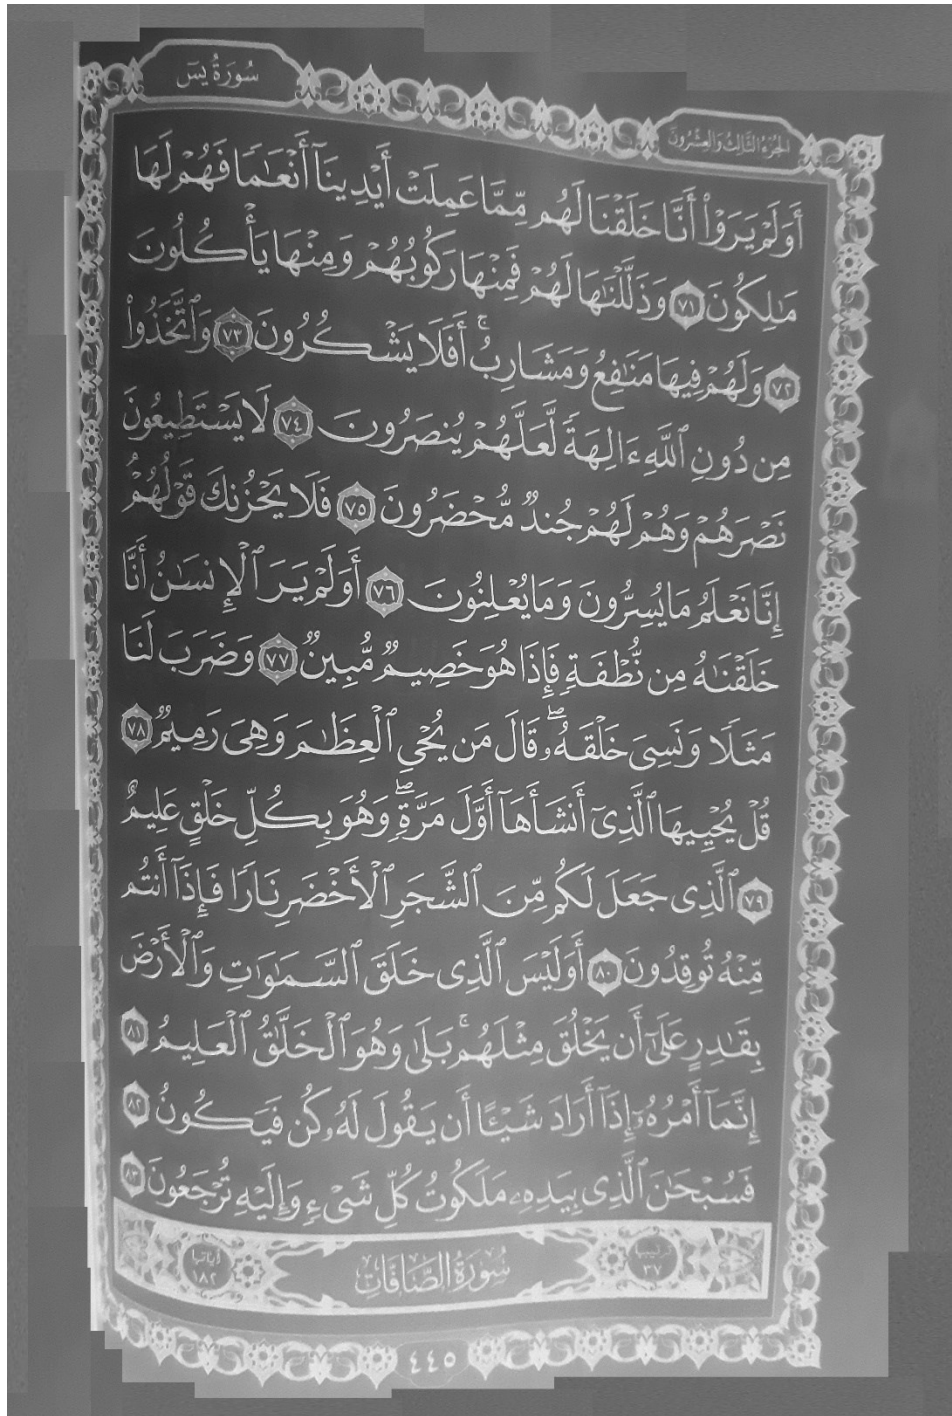 سُورَةُ يسٓ
الجُزءُ الثَّالِثُ وَالعِشْرُونَ
أَوَلَمْ يَرَوْا۟ أَنَّا خَلَقْنَا لَهُم مِّمَّا عَمِلَتْ أَيْدِينَآ أَنْعَٰمًا فَهُمْ لَهَا
مَٰلِكُونَ ٧١ وَذَلَّلْنَٰهَا لَهُمْ فَمِنْهَا رَكُوبُهُمْ وَمِنْهَا يَأْكُلُونَ
٧٢ وَلَهُمْ فِيهَا مَنَٰفِعُ وَمَشَارِبُ ۚ أَفَلَا يَشْكُرُونَ ٧٣ وَٱتَّخَذُوا۟
مِن دُونِ ٱللَّهِ ءَالِهَةً لَّعَلَّهُمْ يُنصَرُونَ ٧٤ لَا يَسْتَطِيعُونَ
نَصْرَهُمْ وَهُمْ لَهُمْ جُندٌ مُّحْضَرُونَ ٧٥ فَلَا يَحْزُنكَ قَوْلُهُمْ
إِنَّا نَعْلَمُ مَا يُسِرُّونَ وَمَا يُعْلِنُونَ ٧٦ أَوَلَمْ يَرَ ٱلْإِنسَٰنُ أَنَّا
خَلَقْنَٰهُ مِن نُّطْفَةٍ فَإِذَا هُوَ خَصِيمٌ مُّبِينٌ ٧٧ وَضَرَبَ لَنَا
مَثَلًا وَنَسِىَ خَلْقَهُۥ ۖ قَالَ مَن يُحْىِ ٱلْعِظَٰمَ وَهِىَ رَمِيمٌ ٧٨
قُلْ يُحْيِيهَا ٱلَّذِىٓ أَنشَأَهَآ أَوَّلَ مَرَّةٍ ۖ وَهُوَ بِكُلِّ خَلْقٍ عَلِيمٌ
٧٩ ٱلَّذِى جَعَلَ لَكُم مِّنَ ٱلشَّجَرِ ٱلْأَخْضَرِ نَارًا فَإِذَآ أَنتُم
مِّنْهُ تُوقِدُونَ ٨٠ أَوَلَيْسَ ٱلَّذِى خَلَقَ ٱلسَّمَٰوَٰتِ وَٱلْأَرْضَ
بِقَٰدِرٍ عَلَىٰٓ أَن يَخْلُقَ مِثْلَهُم ۚ بَلَىٰ وَهُوَ ٱلْخَلَّٰقُ ٱلْعَلِيمُ ٨١
إِنَّمَآ أَمْرُهُۥٓ إِذَآ أَرَادَ شَيْـًٔا أَن يَقُولَ لَهُۥ كُن فَيَكُونُ ٨٢
فَسُبْحَٰنَ ٱلَّذِى بِيَدِهِۦ مَلَكُوتُ كُلِّ شَىْءٍ وَإِلَيْهِ تُرْجَعُونَ ٨٣
ترتيبها ٣٧ سُورَةُ الصَّافَّاتِ آياتها ١٨٢
٤٤٥